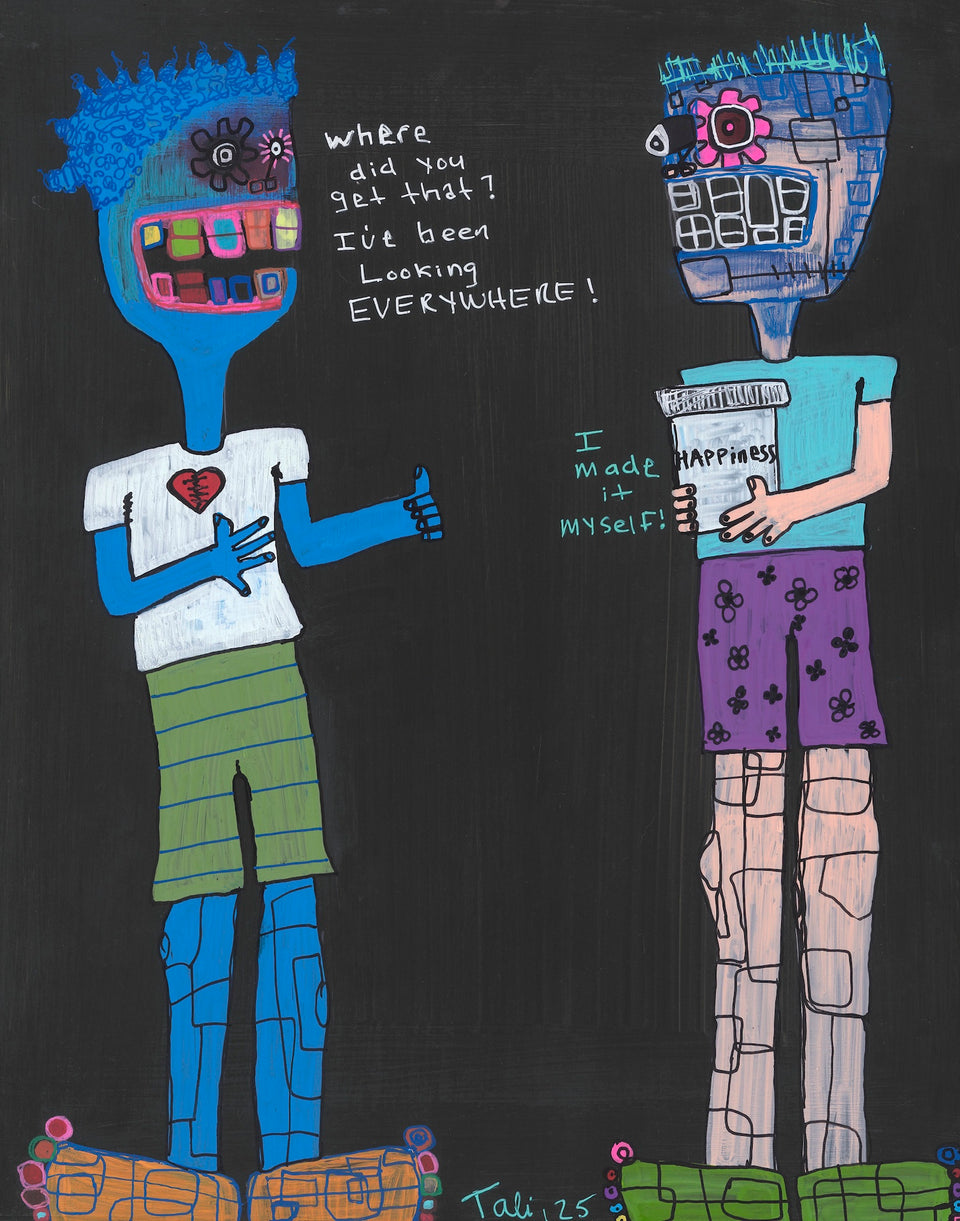 where
did you
get that?
I've been
Looking
EVERYWHERE!
I
made
it
myself!
HAPPiness
Tali, 25